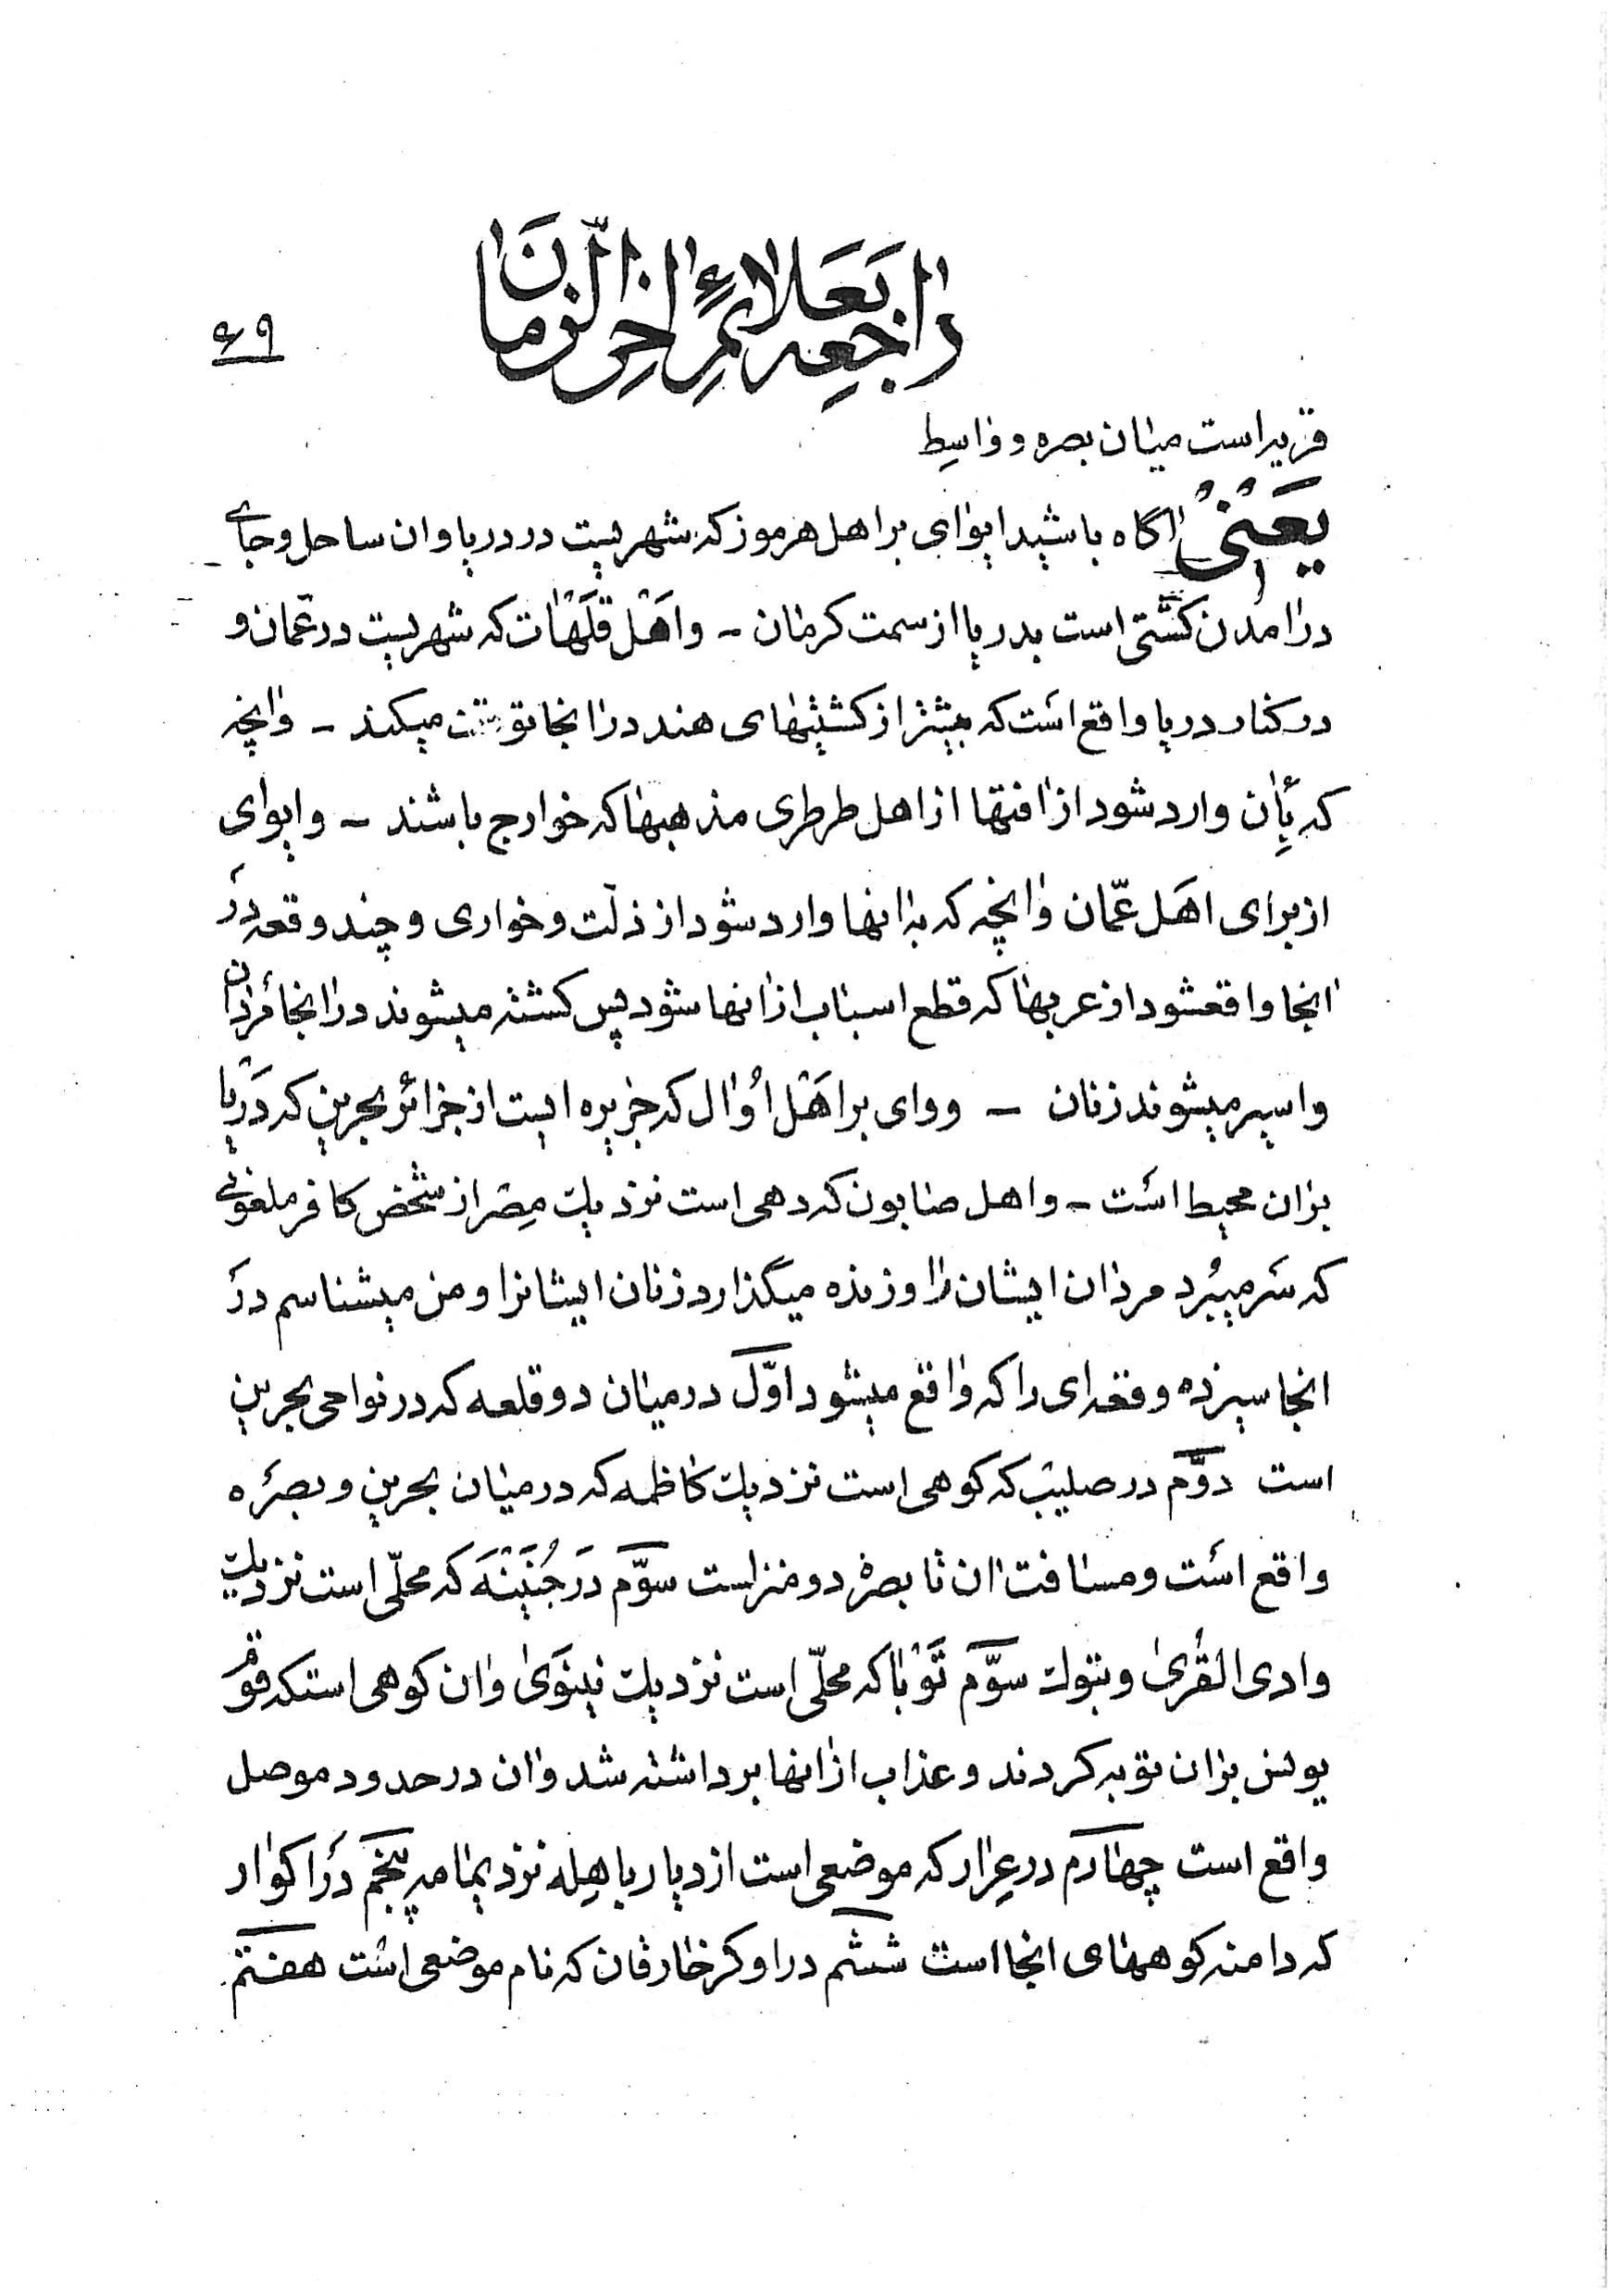 راجعه بعلائم اخرالزمان
۶۹
قریه است میان بصره و واسط
یعنی اگاه باشید ایوای بر اهل هرموز که شهریست در دریا و ان ساحل و جای
درامدن کشتی است بدریا از سمت کرمان – و اهل قلهات که شهریست در عمان و
در کنار دریا واقع است که بیشتر از کشتیهای هند در انجا میکند – و انچه
که بان وارد شود از افتها از اهل طرطری مذهبها که خوارج باشند – و ایوای
از برای اهل عمّان و انچه که به انها وارد شود از ذلّت و خواری و چند وقعه در
انجا واقعشود از عربها که قطع اسباب از انها شود پس کشته میشوند در انجا مردان
و اسیر میشوند زنان – و وای بر اهل اوال که جزیره ایست از جزائر بحرین که دریا
بران محیط است – و اهل صابون که دهی است نزدیک مصر از شخص کافر ملعونی
که سر میبرد مردان ایشان را و زنده میگذارد زنان ایشانرا و من میشناسم در
انجا سیزده وقعه ای را که واقع میشود اوّل در میان دو قلعه که در نواحی بحرین
است دوّم در صلیب که کوهی است نزدیک کاظمه که در میان بحرین و بصره
واقع است و مسافت ان تا بصره دو منزلست سوّم در جُنَینَه که محلّی است نزدیک
وادی القری و تبوک سوّم تَوْبا که محلّی است نزدیک نینوی و ان کوهی استکه قوم
یونس بران توبه کردند و عذاب از انها برداشته شد و ان در حدود موصل
واقع است چهارم در عرار که موضعی است از دیار باهله نزد یمامه پنجم در اکوار
که دامنه کوههای انجا است ششم در اوکر خارقان که نام موضعی است هفتم